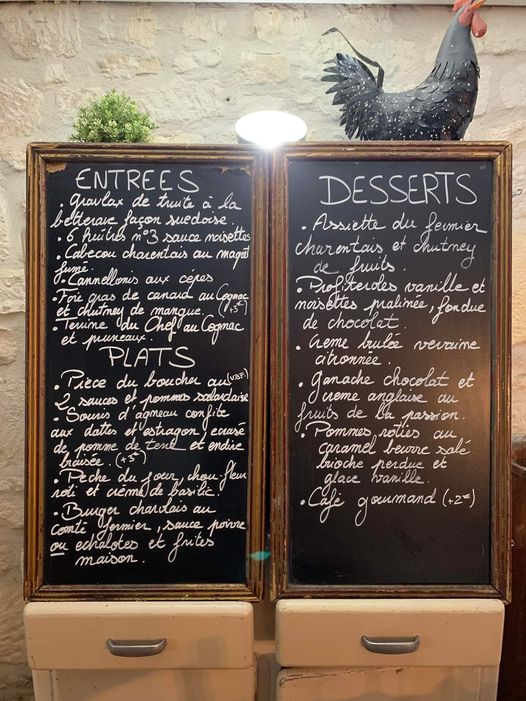 ENTREES
• Gravlax de truite à la
betterave façon suedoise.
• 6 huîtres n°3 sauce noisettes
• Cabecou charentais au magret
fumé.
• Cannellonis aux cèpes
• Foie gras de canard au Cognac
et chutney de mangue. (+3€)
• Terrine du Chef au Cognac
et pruneaux.
PLATS
• Pièce du boucher au (VBF)
2 sauces et pommes salardaise
• Souris d'agneau confite
aux dattes et estragon ecrasé
de pomme de terre et endive
braisée. (+3€)
• Pêche du jour, chou-fleur
roti et crème de basilic!
• Burger charolais au
comté fermier, sauce poivre
ou echalotes et frites
maison.
DESSERTS
• Assiette du fermier
charentais et chutney
de fruits.
• Profiteroles vanille et
noisettes pralinée, fondue
de chocolat.
• Creme brulée verveine
citronnée.
• Ganache chocolat et
creme anglaise au
fruits de la passion.
• Pommes roties au
caramel beurre salé
brioche perdue et
glace vanille.
• Café gourmand (+2€)